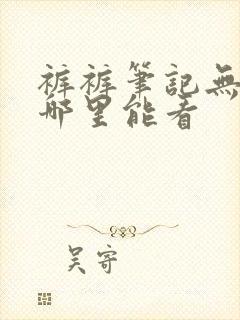 裤裤筆記無
哪里能看
吴寄